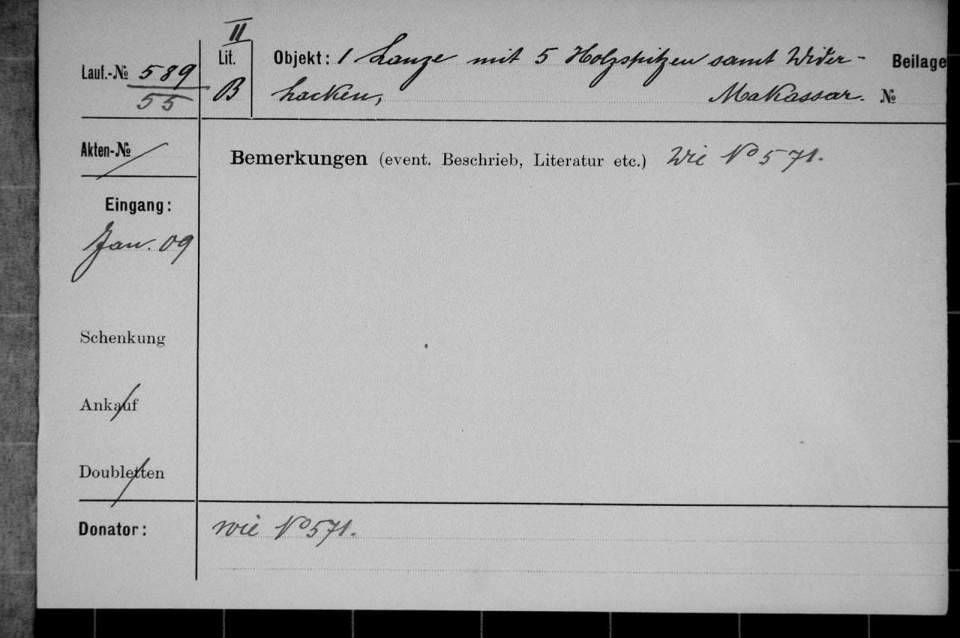 II
Lauf.-№ 589 Lit. Objekt: 1 Lanze mit 5 Holzspitzen samt Wider- Beilage
55 B hacken, Makassar. №
Akten-№
Bemerkungen (event. Beschrieb, Literatur etc.) Wie No 571.
Eingang:
Jan. 09
Schenkung
Ankauf
Doubletten
Donator: wie No 571.